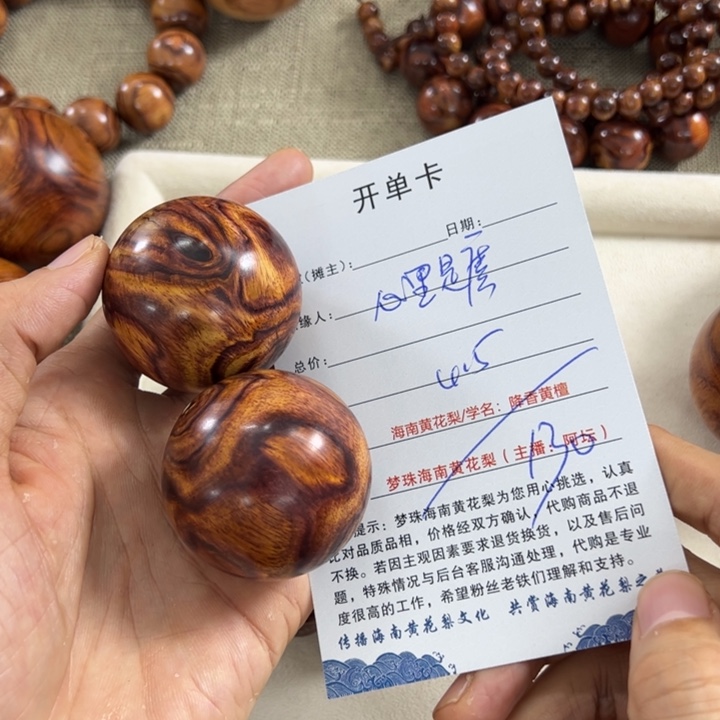 开单卡
日期:
(摊主):
缘人:
总价:
4.5
海南黄花梨/学名: 降香黄檀
梦珠海南黄花梨 ( 主播: 阿坛 )
提示: 梦珠海南黄花梨为您用心挑选, 认真
比对品质品相, 价格经双方确认, 代购商品不退
不换。若因主观因素要求退货换货, 以及售后问
题, 特殊情况与后台客服沟通处理, 代购是专业
度很高的工作, 希望粉丝老铁们理解和支持。
传播海南黄花梨文化 共赏海南黄花梨之